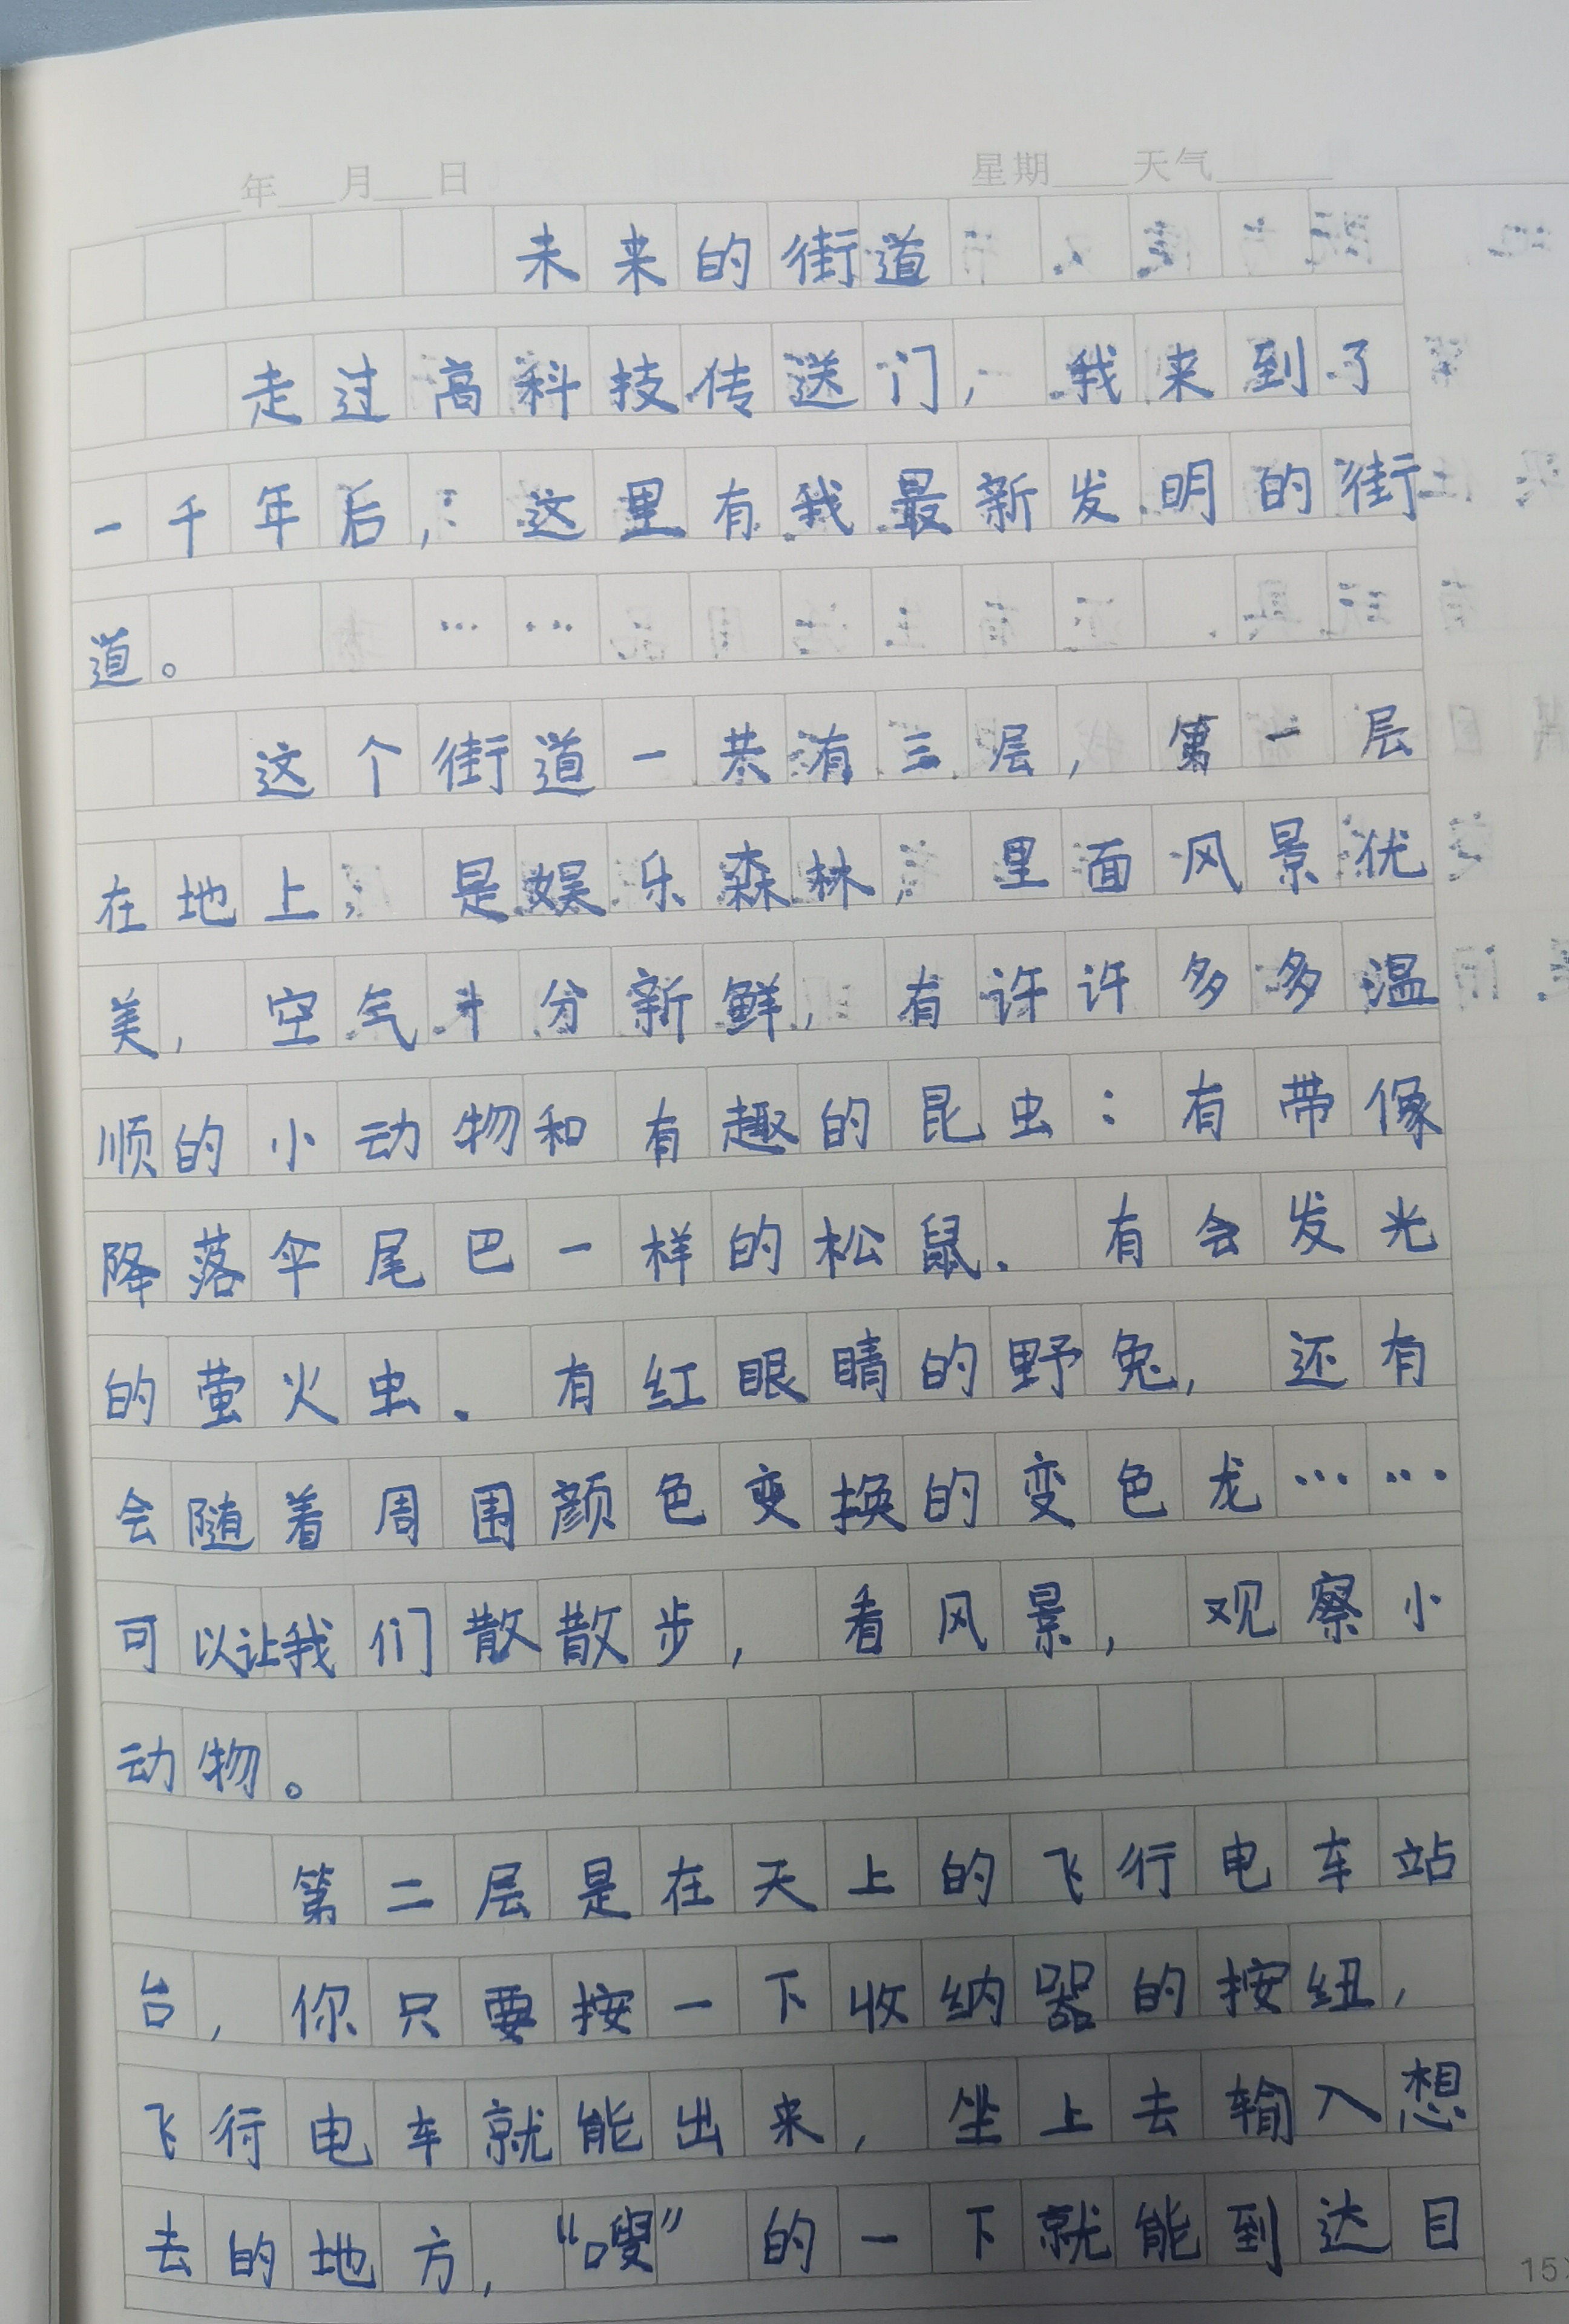 年 月 日 星期 天气
未来的街道
走过高科技传送门，我来到了
一千年后，这里有我最新发明的街
道。
这个街道一共有三层，第一层
在地上，是娱乐森林，里面风景优
美，空气十分新鲜，有许许多多温
顺的小动物和有趣的昆虫：有带像
降落伞尾巴一样的松鼠．有会发光
的萤火虫．有红眼睛的野兔，还有
会随着周围颜色变换的变色龙……
可以让我们散散步，看风景，观察小
动物。
第二层是在天上的飞行电车站
台，你只要按一下收纳器的按纽，
飞行电车就能出来，坐上去输入想
去的地方，“嗖”的一下就能到达目